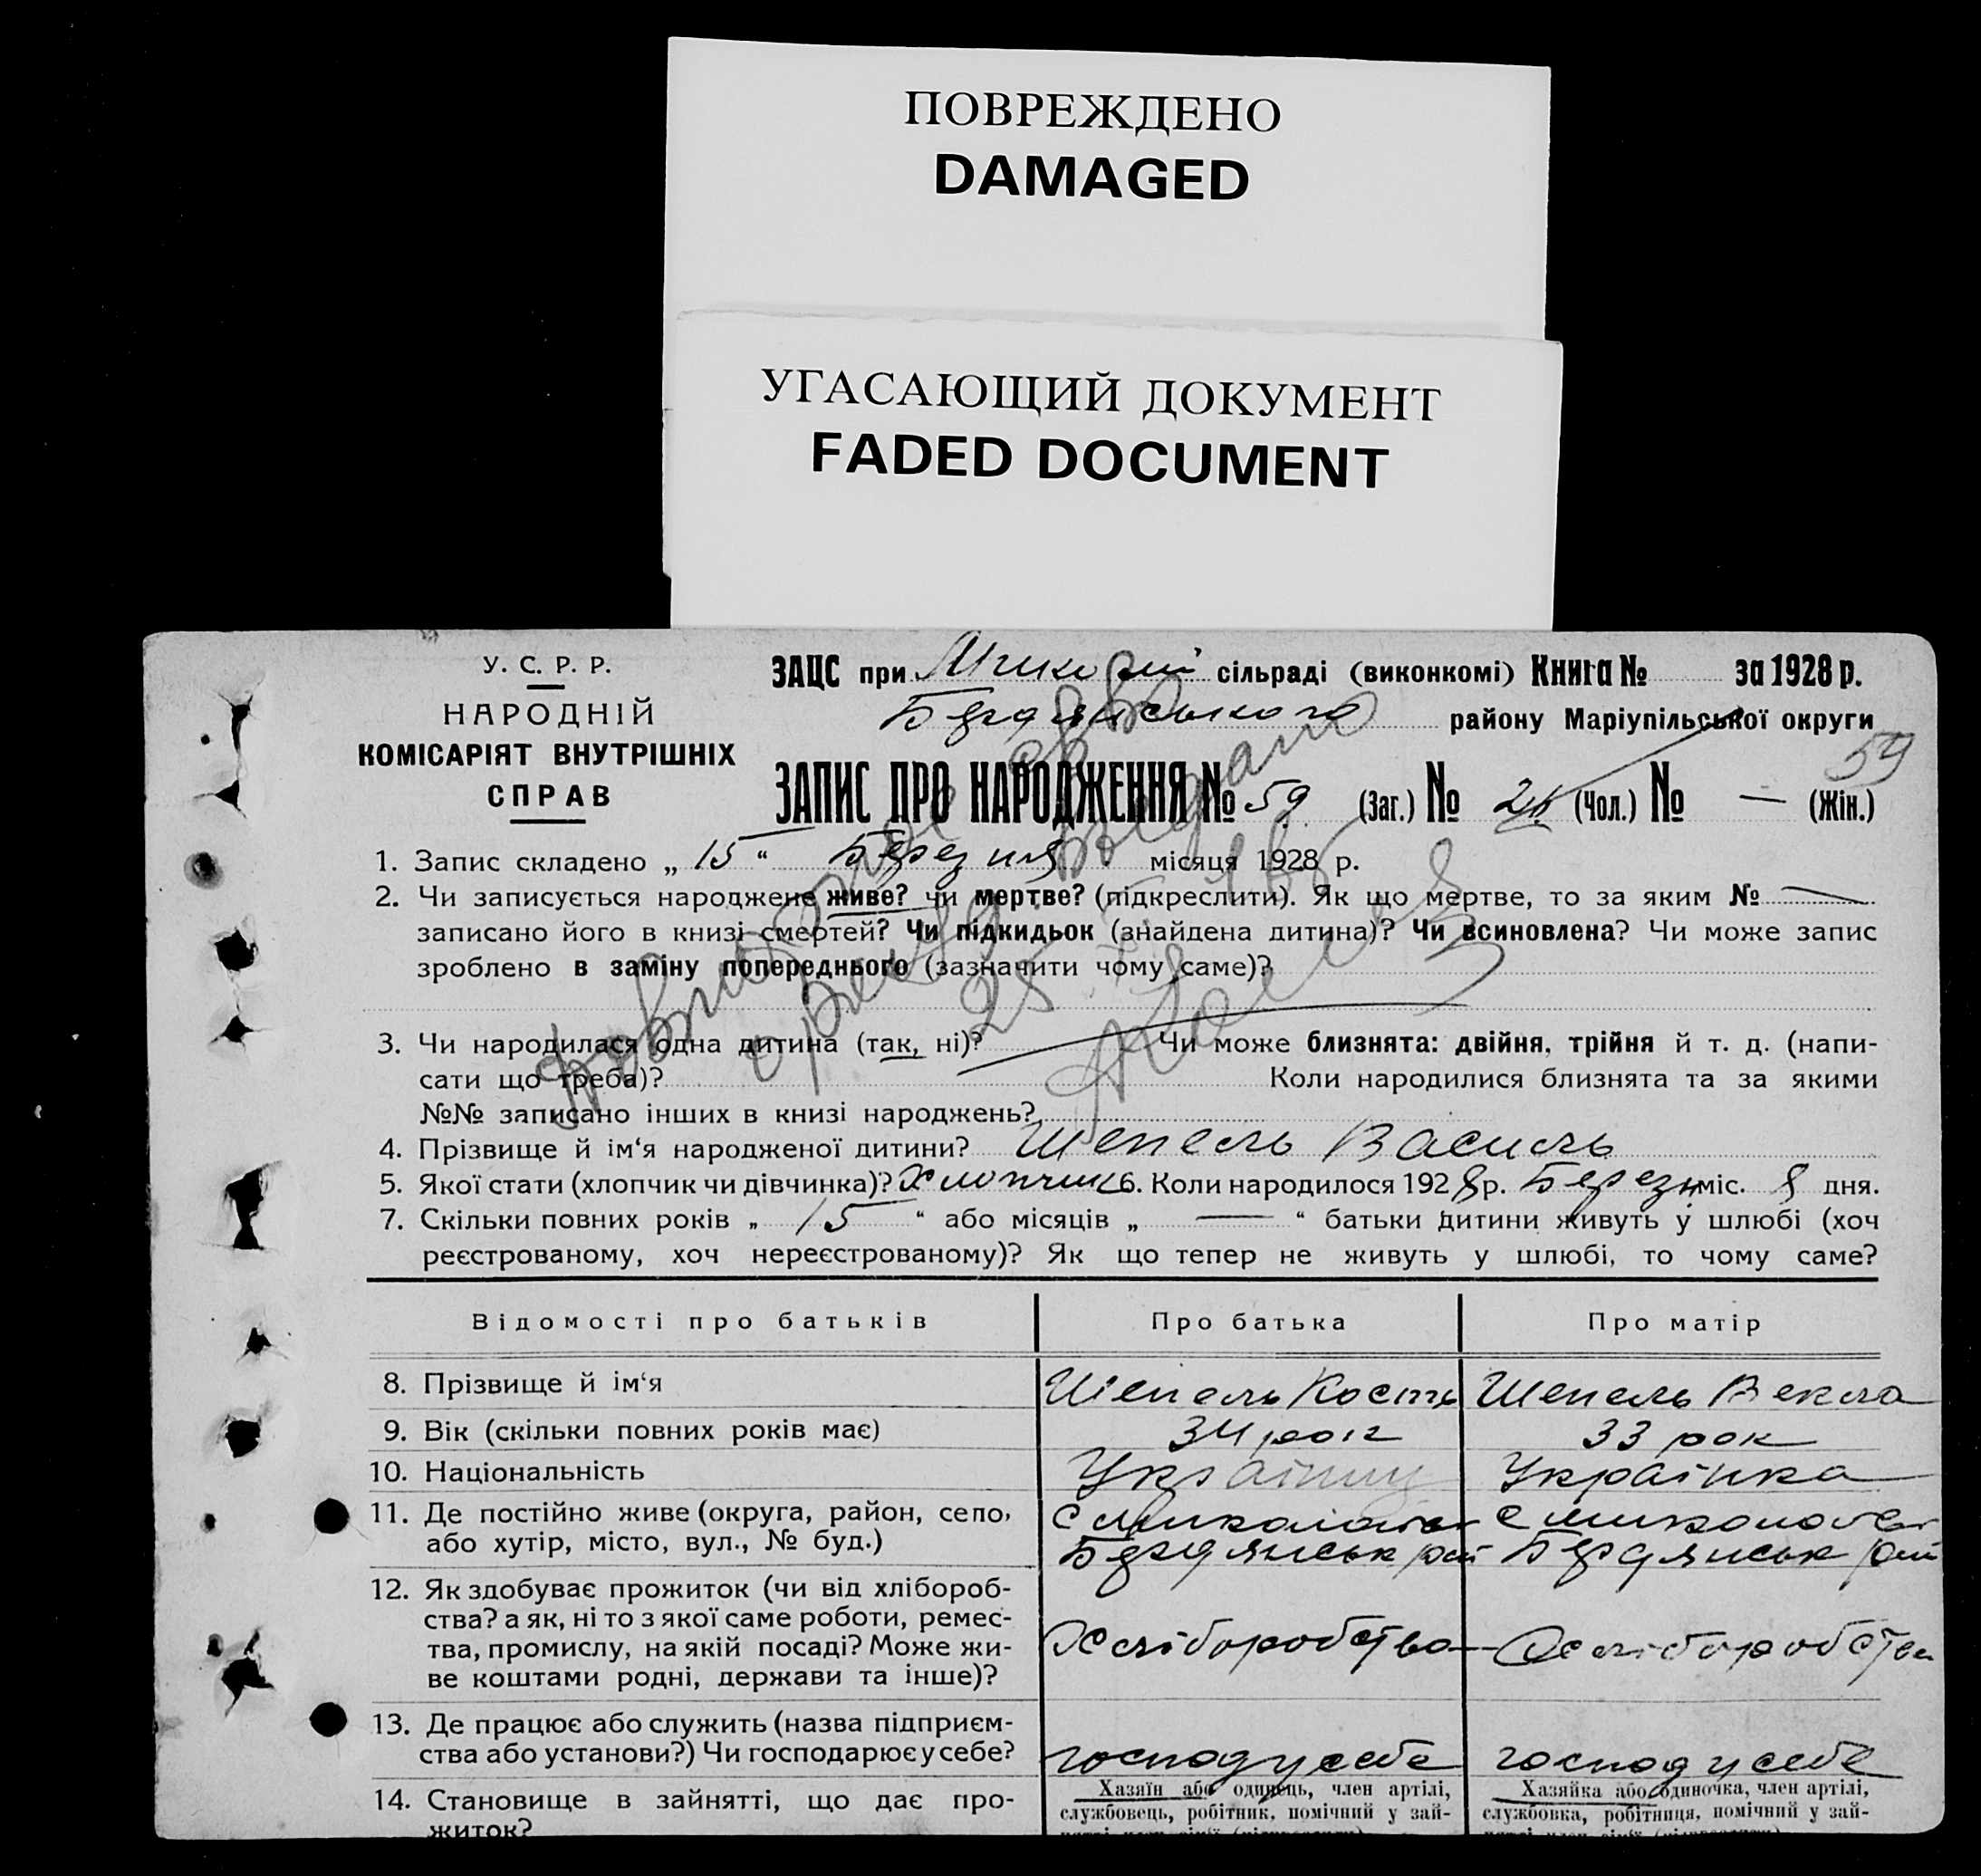 ПОВРЕЖДЕНО
DAMAGED
УГАСАЮЩИЙ ДОКУМЕНТ
FADED DOCUMENT
У. С. Р. Р.
НАРОДНІЙ
КОМІСАРІЯТ ВНУТРІШНІХ
СПРАВ
ЗАЦС при сільраді (виконкомі) Книга № за 1928 р.
Бердянського району Маріупільської округи
59
ЗАПИС ПРО НАРОДЖЕННЯ № 59 (Заг.) № (Чол.) № — (Жін.)
1. Запис складено „ 15 “ Березня місяця 1928 р.
2. Чи записується народжене живе? чи мертве? (підкреслити). Як що мертве, то за яким № —
записано його в книзі смертей? Чи підкидьок (знайдена дитина)? Чи всиновлена? Чи може запис
зроблено в заміну попереднього (зазначити чому саме)?
3. Чи народилася одна дитина (так, ні)? Чи може близнята: двійня, трійня й т. д. (напи-
сати що треба)? Коли народилися близнята та за якими
№№ записано інших в книзі народжень?
4. Прізвище й ім‘я народженої дитини? Шепель Василь
5. Якої стати (хлопчик чи дівчинка)? Хлопчик 6. Коли народилося 1928 р. Березн міс. 8 дня.
7. Скільки повних років „ 15 “ або місяців „ — “ батьки дитини живуть у шлюбі (хоч
реєстрованому, хоч нереєстрованому)? Як що тепер не живуть у шлюбі, то чому саме?
Відомості про батьків Про батька Про матір
8. Прізвище й ім‘я Шепель Кость Шепель Векла
9. Вік (скільки повних років має) 34 рок 33 рок
10. Національність Українц Українка
11. Де постійно живе (округа, район, село,
або хутір, місто, вул., № буд.)
Бердянськ рай Бердянськ рай
12. Як здобуває прожиток (чи від хлібороб-
ства? а як, ні то з якої саме роботи, ремес-
тва, промислу, на якій посаді? Може жи-
ве коштами родні, держави та інше)?
Хліборобство Хліборобство
13. Де працює або служить (назва підприєм-
ства або установи?) Чи господарює у себе?
господ у себе господ у себе
14. Становище в зайнятті, що дає про-
житок?
Хазяїн або одинець, член артілі,
службовець, робітник, помічний у зай-
Хазяйка або одиночка, член артілі,
службовка, робітниця, помічний у зай-